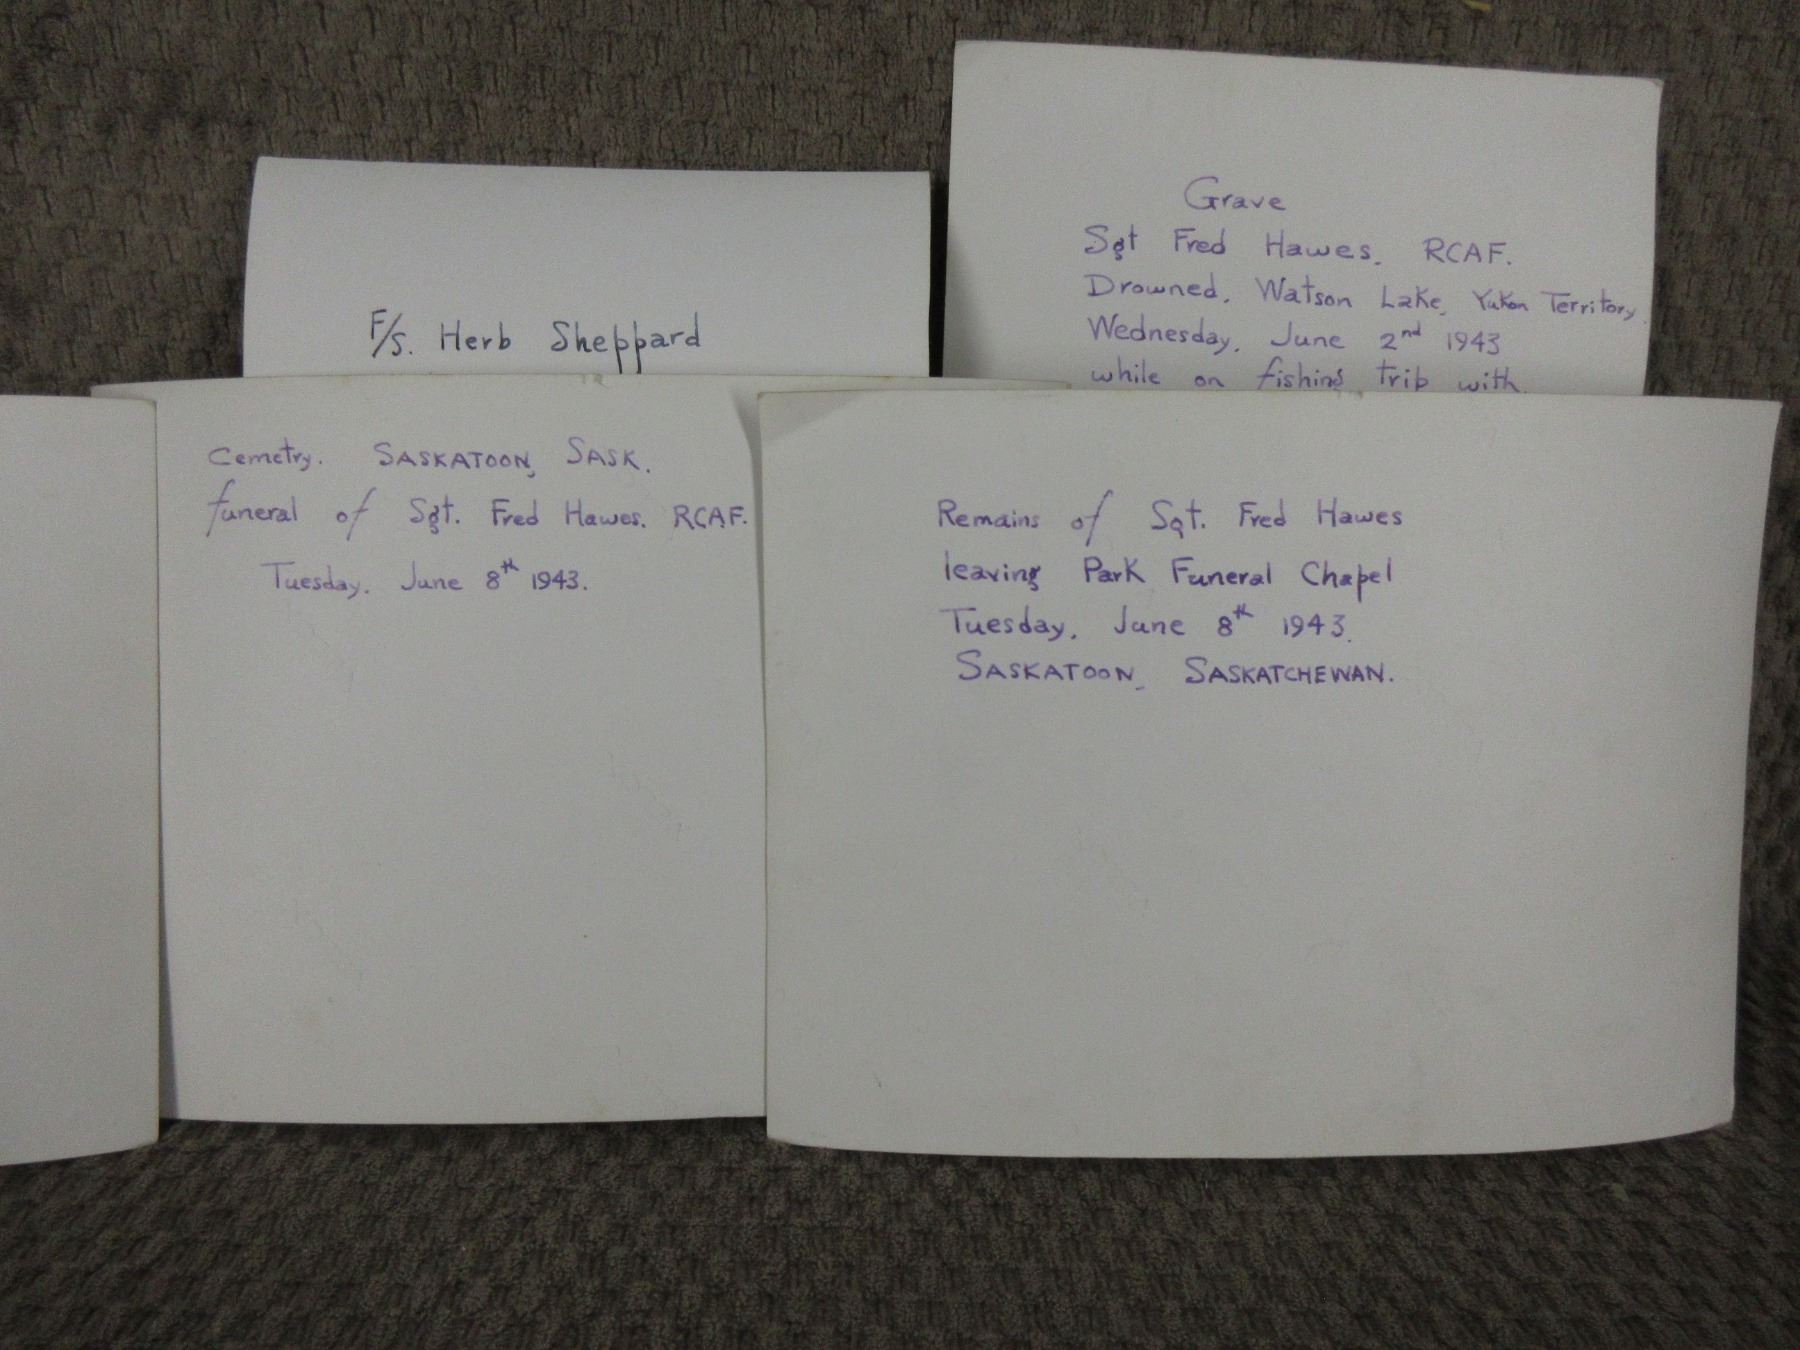 F/S. Herb Sheppard
Grave
Sgt Fred Hawes. RCAF.
Drowned, Watson Lake, Yukon Territory.
Wednesday, June 2nd 1943
while on fishing trip with
Cemetry. SASKATOON, SASK.
funeral of Sgt. Fred Hawes. RCAF.
Tuesday. June 8th 1943.
Remains of Sgt. Fred Hawes
leaving Park Funeral Chapel
Tuesday, June 8th 1943.
SASKATOON, SASKATCHEWAN.